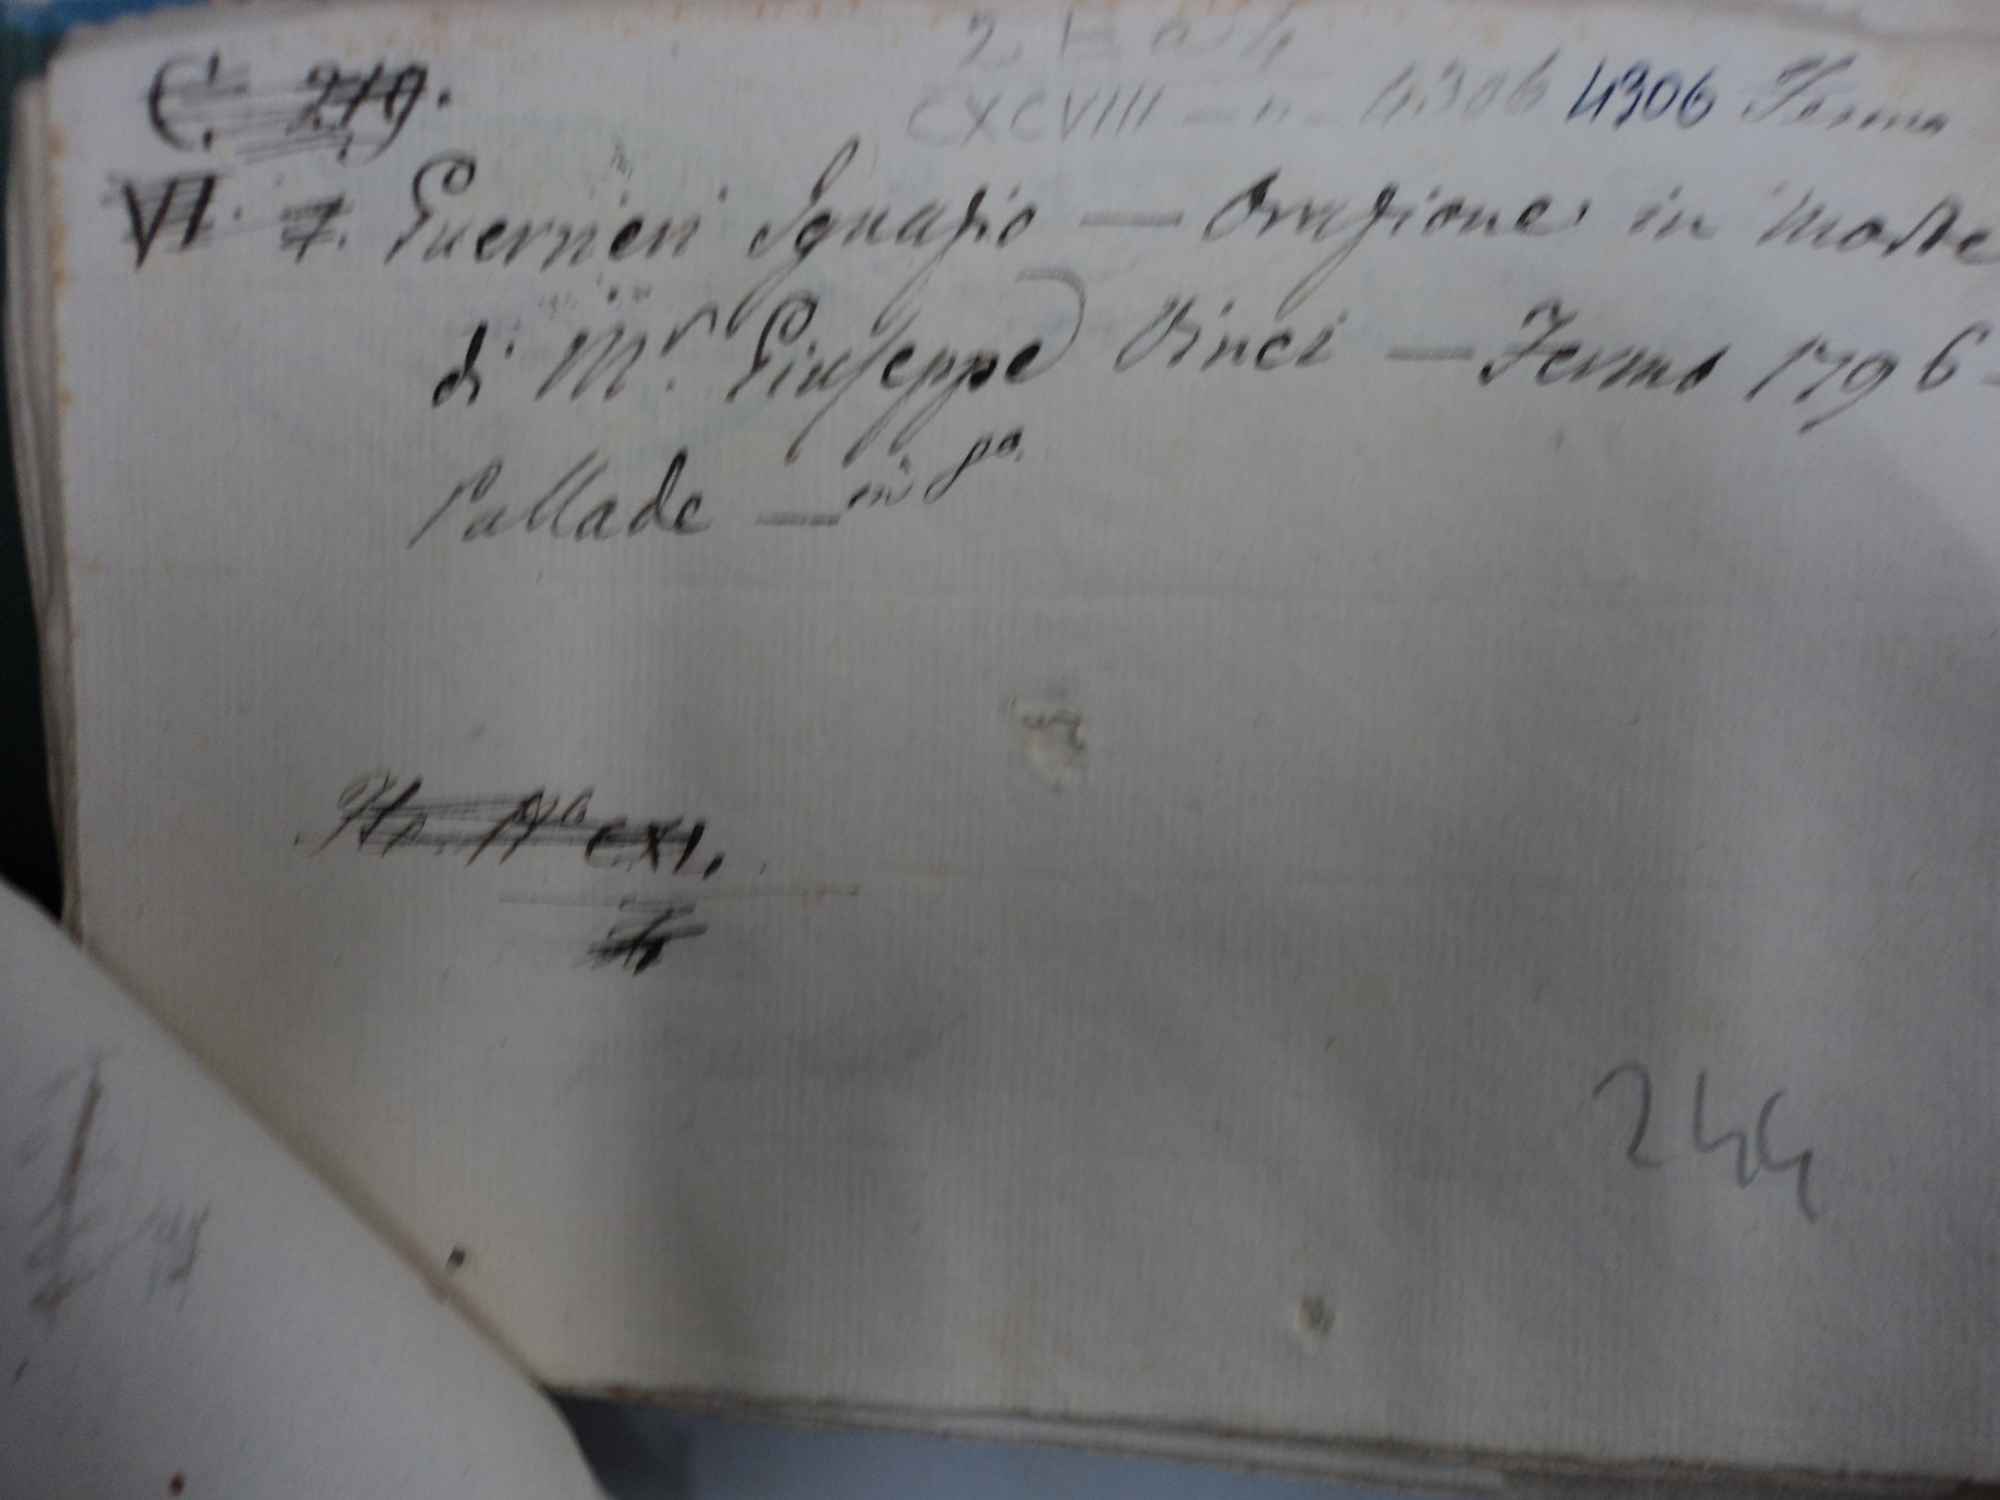 2 H a 4
CXCVIII - n. 4306 4306 Fermo
C. 219.
VI. 7. Guerrieri Ignazio — Orazione in morte
di Mr. Giuseppe Vinci — Fermo 1796 -
Pallade — in 8o.
CXI.
244